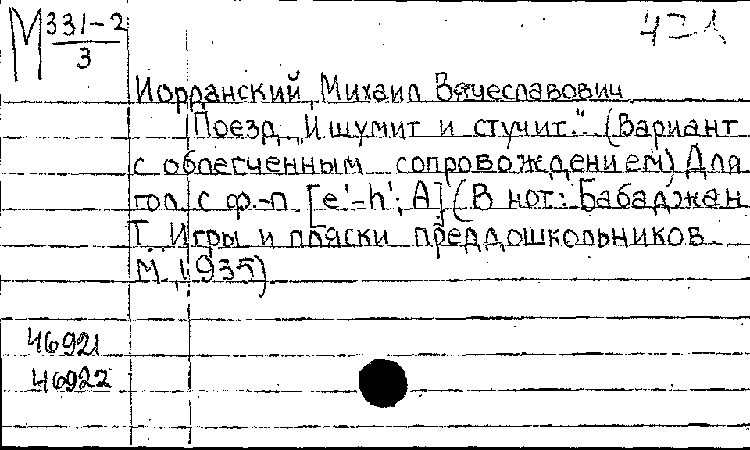 М 331-2
3
Иорданский, Михаил Вячеславович
Поезд „И шумит и стучит." (Вариант
с облегченным сопровождением) Для
гол. с ф.-п. [e'-h'; A] (В нот.: Бабаджан
Т. Игры и пляски преддошкольников.
М., 1935)
46921
46922